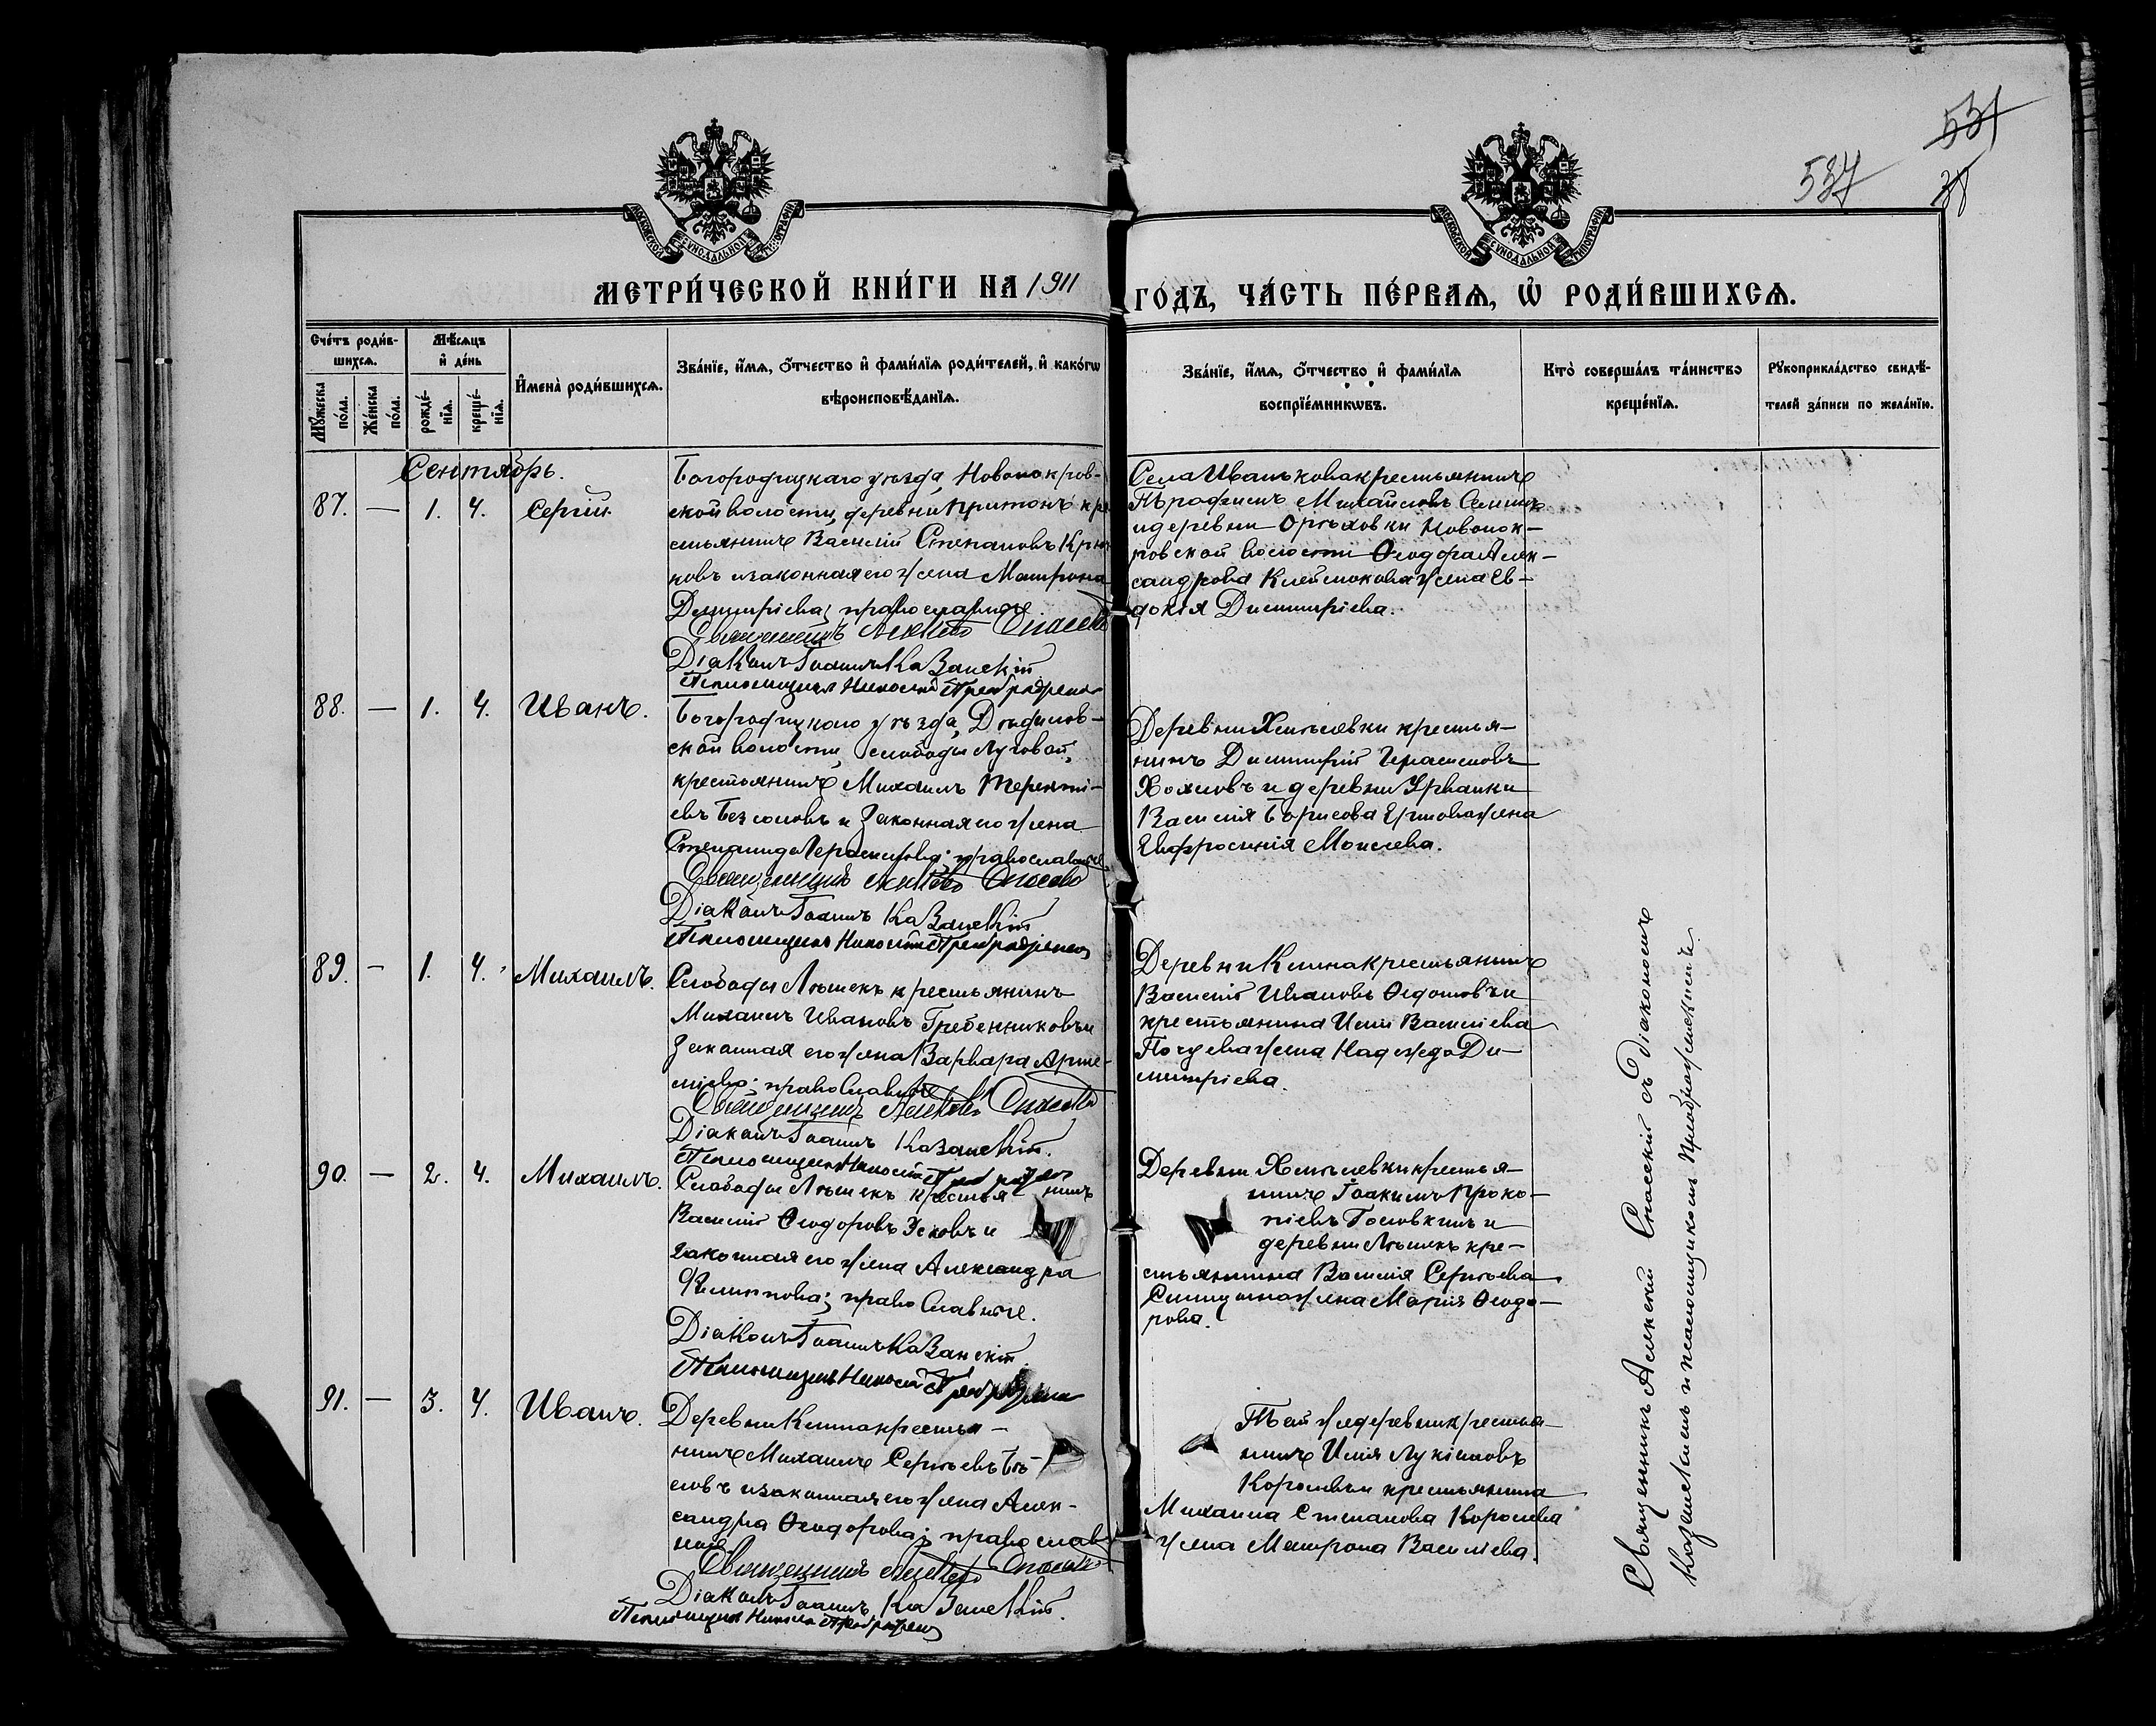 531
537
38
МОСКОВСКОЙ СѴНОДАЛЬНОЙ ТИПОГРАФІИ
МОСКОВСКОЙ СѴНОДАЛЬНОЙ ТИПОГРАФІИ
МЕТРИ́ЧЕСКОЙ КНИ́ГИ НА 1911
ГО́ДЪ, ЧА́СТЬ ПЕ́РВАѦ, Ѡ҆ РОДИ́ВШИХСѦ.
Сче́тъ роди́в-
шихсѧ.
Мꙋ́жеска по́ла.
Же́нска по́ла.
Мѣ́сѧцъ
и҆ де́нь
рожде́-
нїѧ.
креще́-
нїѧ.
И҆мена̀ роди́вшихсѧ.
Зва́нїе, и҆́мѧ, ѻ҆́тчество и҆ фами́лїѧ роди́телей, и҆ како́гѡ
вѣроисповѣ́данїѧ.
Зва́нїе, и҆́мѧ, ѻ҆́тчество и҆ фами́лїѧ
воспрїе́мникѡвъ.
Кто̀ соверша́лъ та́инство
креще́нїѧ.
Рꙋкоприкла́дство свидѣ́-
телей за́писи по жела́нїю.
Сентябрь.
87. — 1. 4. Сергій.
Богородицкаго уѣзда, Новопокров-
ской волости, деревни Притонъ кре
стьянинъ Василій Степановъ Крю
ковъ и законная его жена Матрона
Димитріева; православные.
Священникъ Алексѣй Спасскій
Діаконъ Іоаннъ Казанскій
Псаломщикъ Николай Преображенск
Села Иванькова крестьянинъ
Трофимъ Михайловъ Семинъ
и деревни Орѣховки Новопок-
ровской волости Ѳеодора Алек-
сандрова Клейменова жена Ев-
докія Димитріева.
88. — 1. 4. Иванъ.
Богородицкаго уѣзда, Дѣдилов-
ской волости, слободы Луговой,
крестьянинъ Михаилъ Теренті-
евъ Безсоновъ и законная его жена
Степанида Герасимова; православные
Священникъ Алексѣй Спасскій
Діаконъ Іоаннъ Казанскій
Псаломщикъ Николай Преображенск
Деревни Хмѣлевки крестья-
нинъ Димитрій Герасимовъ
Хохловъ и деревни Урванки
Василія Борисова Ермова жена
Евфросинія Моисеева.
89. — 1. 4. Михаилъ.
Слободы Лѣшекъ крестьянинъ
Михаилъ Ивановъ Гребенниковъ и
законная его жена Варвара Арте-
міева; православные
Священникъ Алексѣй Спасскій
Діаконъ Іоаннъ Казанскій.
Псаломщикъ Николай Преображен
Деревни Клина крестьянинъ
Василій Ивановъ Ѳедотовъ и
крестьянина Иліи Васильева
жена Надежда Ди-
митріева.
90. — 2. 4. Михаилъ.
Слободы Лѣшекъ крестья нинъ
Василій Ѳеодоровъ и
законная его жена Александра
Филиппова; православные.
Діаконъ Іоаннъ Казанскій
Псаломщикъ Николай Преображен
Деревни Хмѣлевки крестья-
нинъ Іоакимъ Проко-
піевъ Головкинъ и
деревни Лѣшекъ кре-
стьянина Василія Сергѣева
Синицына жена Марія Ѳеодо-
рова.
91. — 3. 4. Иванъ.
Деревни Клина крестья-
нинъ Михаилъ Сергѣевъ Бѣ-
ловъ и законная его жена Алек-
сандра Ѳеодорова; православ
ные.
Священникъ Алексѣй Спасскій
Діаконъ Іоаннъ Казанскій.
Псаломщикъ Николай Преображенск
Той же деревни крестья-
нинъ Илія Лукіановъ
Королевъ и крестьянина
Михаила Степанова Королева
жена Матрона Васильева.
Священникъ Алексѣй Спасскій съ діакономъ
Казанскимъ и псаломщикомъ Преображенскимъ.